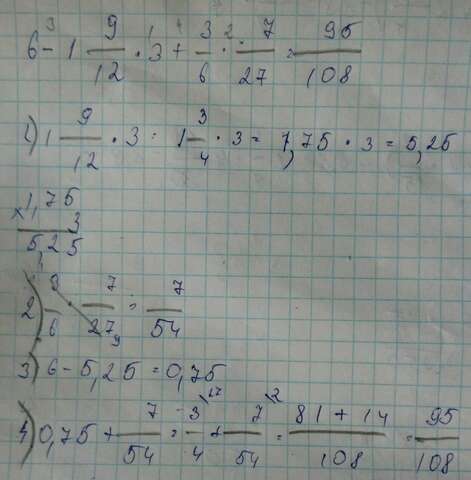 6 - 1 9/12 · 3 + 3/6 · 7/27 = 95/108
1) 1 9/12 · 3 = 1 3/4 · 3 = 1,75 · 3 = 5,25
× 1,75
3
5,25
2) 3/6 · 7/27 = 7/54
3) 6 - 5,25 = 0,75
4) 0,75 + 7/54 = 3/4 + 7/54 = 81 + 14/108 = 95/108